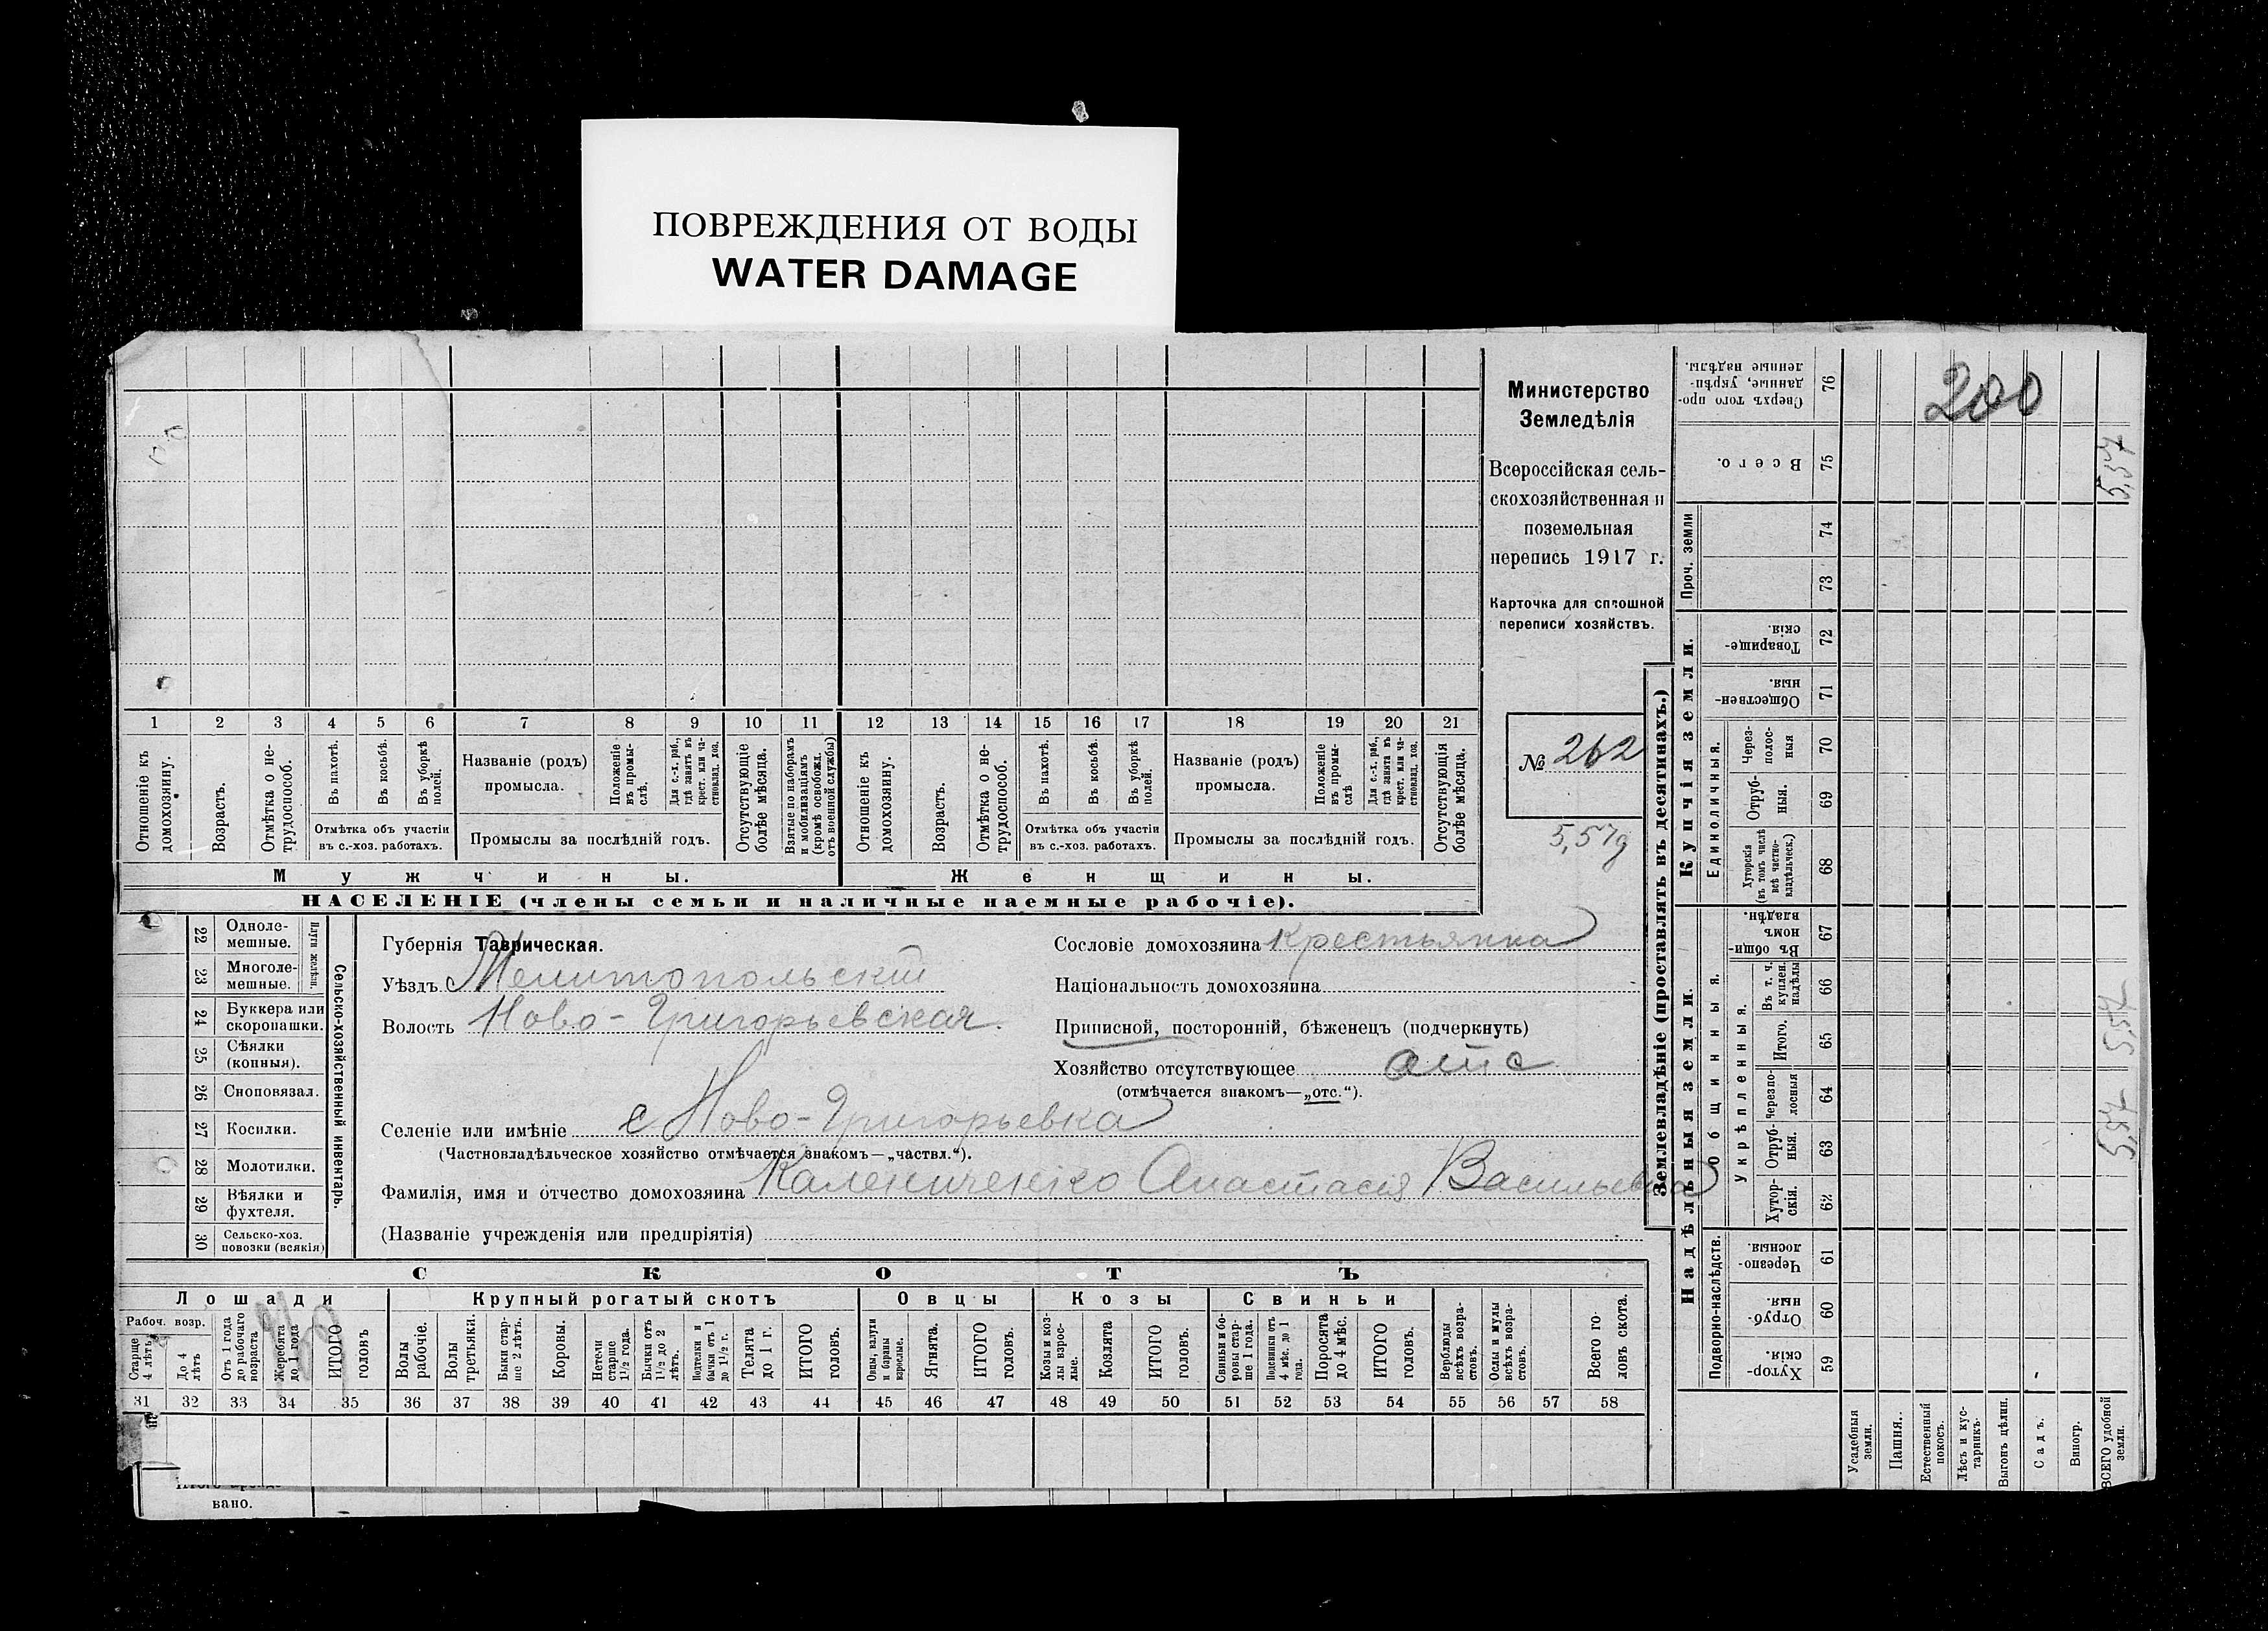 ПОВРЕЖДЕНИЯ ОТ ВОДЫ
WATER DAMAGE
Министерство
Земледѣлія
Всероссійская сель-
скохозяйственная и
поземельная
перепись 1917 г.
Карточка для сплошной
переписи хозяйствъ.
№ 262
5,57
1 2 3 4 5 6 7 8 9 10 11 12 13 14 15 16 17 18 19 20 21
Отношеніе къ домохозяину.
Возрастъ.
Отмѣтка о не-трудоспособ.
Въ пахотѣ.
Въ косьбѣ.
Въ уборкѣ полей.
Отмѣтка объ участіи
въ с.-хоз. работахъ.
Названіе (родъ)
промысла.
Положеніе въ промы-слѣ.
Для с.-х. раб., гдѣ занятъ въ крест. или ча-стновлад. хоз.
Промыслы за послѣдній годъ.
Отсутствующіе болѣе мѣсяца.
Взятые по наборамъ и мобилизаціямъ (кромѣ освобожд. отъ военной службы)
Отношеніе къ домохозяину.
Возрастъ.
Отмѣтка о не-трудоспособ.
Въ пахотѣ.
Въ косьбѣ.
Въ уборкѣ полей.
Отмѣтка объ участіи
въ с.-хоз. работахъ.
Названіе (родъ)
промысла.
Положеніе въ промы-слѣ
Для с.-х. раб., гдѣ занята въ крест. или ча-стновлад. хоз.
Промыслы за послѣдній годъ.
Отсутствующія болѣе мѣсяца.
Мужчины. Женщины.
НАСЕЛЕНІЕ (члены семьи и наличные наемные рабочіе).
22 Одноле-мешные.
23 Многоле-мешные.
Плуги желѣзн.
24 Буккера или скоропашки.
25 Сѣялки (конныя).
26 Сноповязал.
27 Косилки.
28 Молотилки.
29 Вѣялки и фухтеля.
30 Сельско-хоз. повозки (всякія)
Сельско-хозяйственный инвентарь.
Губернія Таврическая.
Уѣздъ Мелитопольскій
Волость Ново-Григорьевская.
Сословіе домохозяина крестьянка
Національность домохозяина
Приписной, посторонній, бѣженецъ (подчеркнуть)
Хозяйство отсутствующее отс
(отмѣчается знакомъ—„отс.“).
Селеніе или имѣніе с Ново-Григорьевка
(Частновладѣльческое хозяйство отмѣчается знакомъ—„частвл.“).
Фамилія, имя и отчество домохозяина Калениченко Анастасія Васильевна
(Названіе учрежденія или предпріятія)
СКОТЪ
Лошади Крупный рогатый скотъ Овцы Козы Свиньи
Рабоч. возр.
Старше 4 лѣтъ
До 4 лѣтъ
Отъ 1 года до рабочаго возраста
Жеребята до 1 года
ИТОГО головъ
Волы рабочіе.
Волы третьяки.
Быки стар-ше 2 лѣтъ.
Коровы.
Нетели старше 1½ года.
Бычки отъ 1½ до 2 лѣтъ.
Подтелки и бычки отъ 1 до 1½ г.
Телята до 1 г.
ИТОГО головъ.
Овцы, валухи и бараны взрослые.
Ягнята.
ИТОГО головъ.
Козы и коз-лы взрос-лые.
Козлята
ИТОГО головъ.
Свиньи и бо-ровы стар-ше 1 года.
Подсвинки отъ 4 мѣс. до 1 года.
Поросята до 4 мѣс.
ИТОГО головъ.
Верблюды всѣхъ возра-стовъ.
Ослы и мулы всѣхъ возра-стовъ.
Всего го-ловъ скота.
31 32 33 34 35 36 37 38 39 40 41 42 43 44 45 46 47 48 49 50 51 52 53 54 55 56 57 58
вано.
Землевладѣніе (проставлять въ десятинахъ.)
Купчія земли.
Надѣльныя земли.
Сверхъ того про-данные, укрѣп-ленные надѣлы. 76
200
Всего. 75
5,57
Проч. земли 74 73
Товарище-скія. 72
Обществен-ныя. 71
Единоличныя.
Через-полос-ныя 70
Отруб-ныя. 69
Хуторскія (въ томъ числѣ всѣ частно-владѣльческ.) 68
Общинныя.
Въ общин-номъ владѣн. 67
Укрѣпленныя.
Въ т. ч. куплен. надѣлы 66
Итого. 65
5,57
Черезпо-лосныя 64
Отруб-ныя. 63
5,57
Хутор-скія. 62
Подворно-наслѣдств.
Черезпо-лосныя 61
Отруб-ныя. 60
Хутор-скія. 59
Усадебныя земли.
Пашня.
Естественный покосъ.
Лѣсъ и кус-тарникъ.
Выгонъ цѣлин.
Садъ.
Виногр.
ВСЕГО удобной земли.